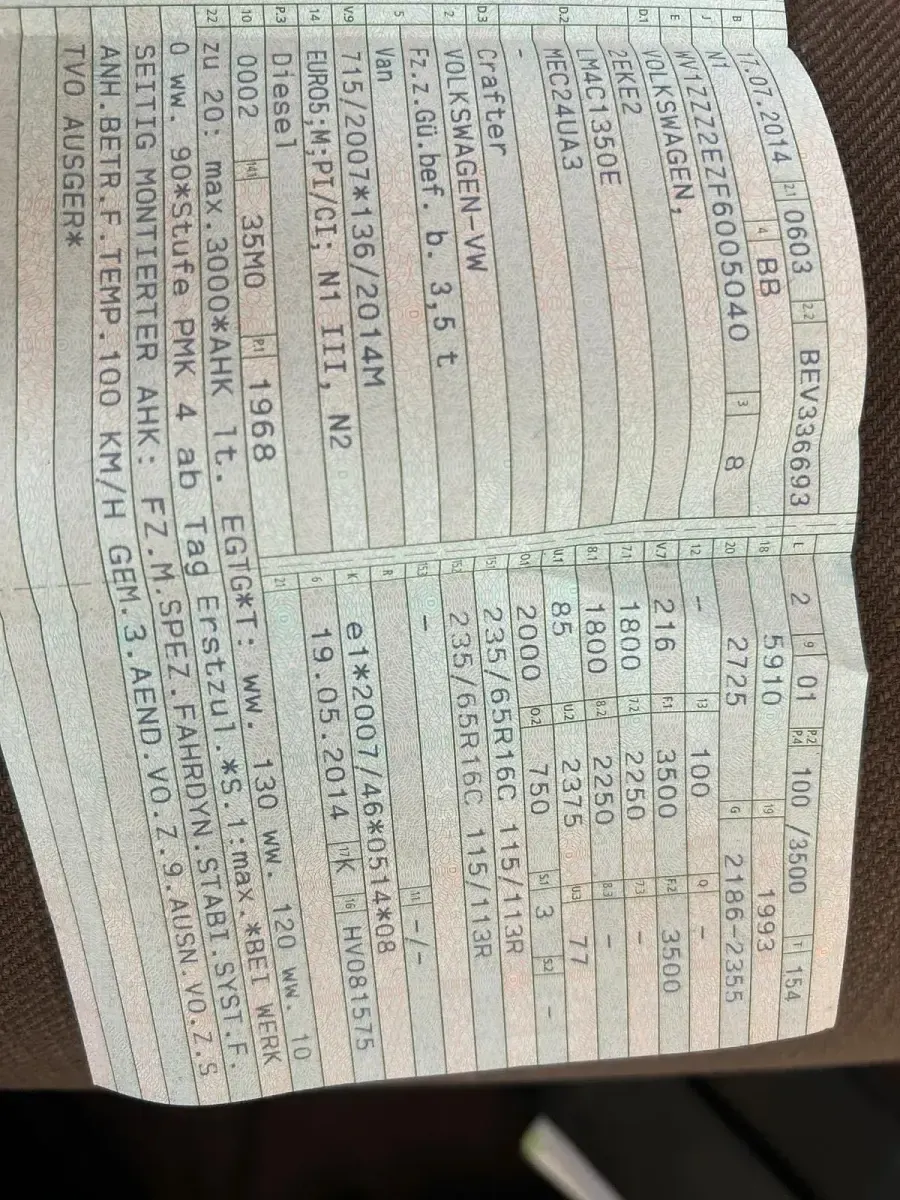 B 17.07.2014 2.1 0603 2.2 BEV336693
J N1 4 BB
E WV1ZZZ2EZF6005040 3 8
D.1 VOLKSWAGEN,
2EKE2
D.2 LM4C1350E
MEC24UA3
-
D.3 Crafter
2 VOLKSWAGEN-VW
5 Fz.z.Gü.bef. b. 3,5 t
Van
V.9 715/2007*136/2014M
14 EURO5;M;PI/CI; N1 III, N2
P.3 Diesel
10 0002 14.1 35M0 P.1 1968
22 zu 20: max.3000*AHK lt. EGTG*T: ww. 130 ww. 120 ww. 10
0 ww. 90*Stufe PMK 4 ab Tag Erstzul.*S.1:max.*BEI WERK
SEITIG MONTIERTER AHK: FZ.M.SPEZ.FAHRDYN.STABI.SYST.F.
ANH.BETR.F.TEMP.100 KM/H GEM.3.AEND.VO.Z.9.AUSN.VO.Z.S
TVO AUSGER*
L 2 9 01 P.2 P.4 100 /3500 T 154
18 5910 19 1993
20 2725 G 2186-2355
12 -- 13 100 Q -
V.7 216 F.1 3500 F.2 3500
7.1 1800 7.2 2250 7.3 -
8.1 1800 8.2 2250 8.3 -
U.1 85 U.2 2375 U.3 77
O.1 2000 O.2 750 S.1 3 S.2 -
15.1 235/65R16C 115/113R
15.2 235/65R16C 115/113R
15.3 -
R 11 -/-
K e1*2007/46*0514*08
6 19.05.2014 17 K 16 HV081575
21